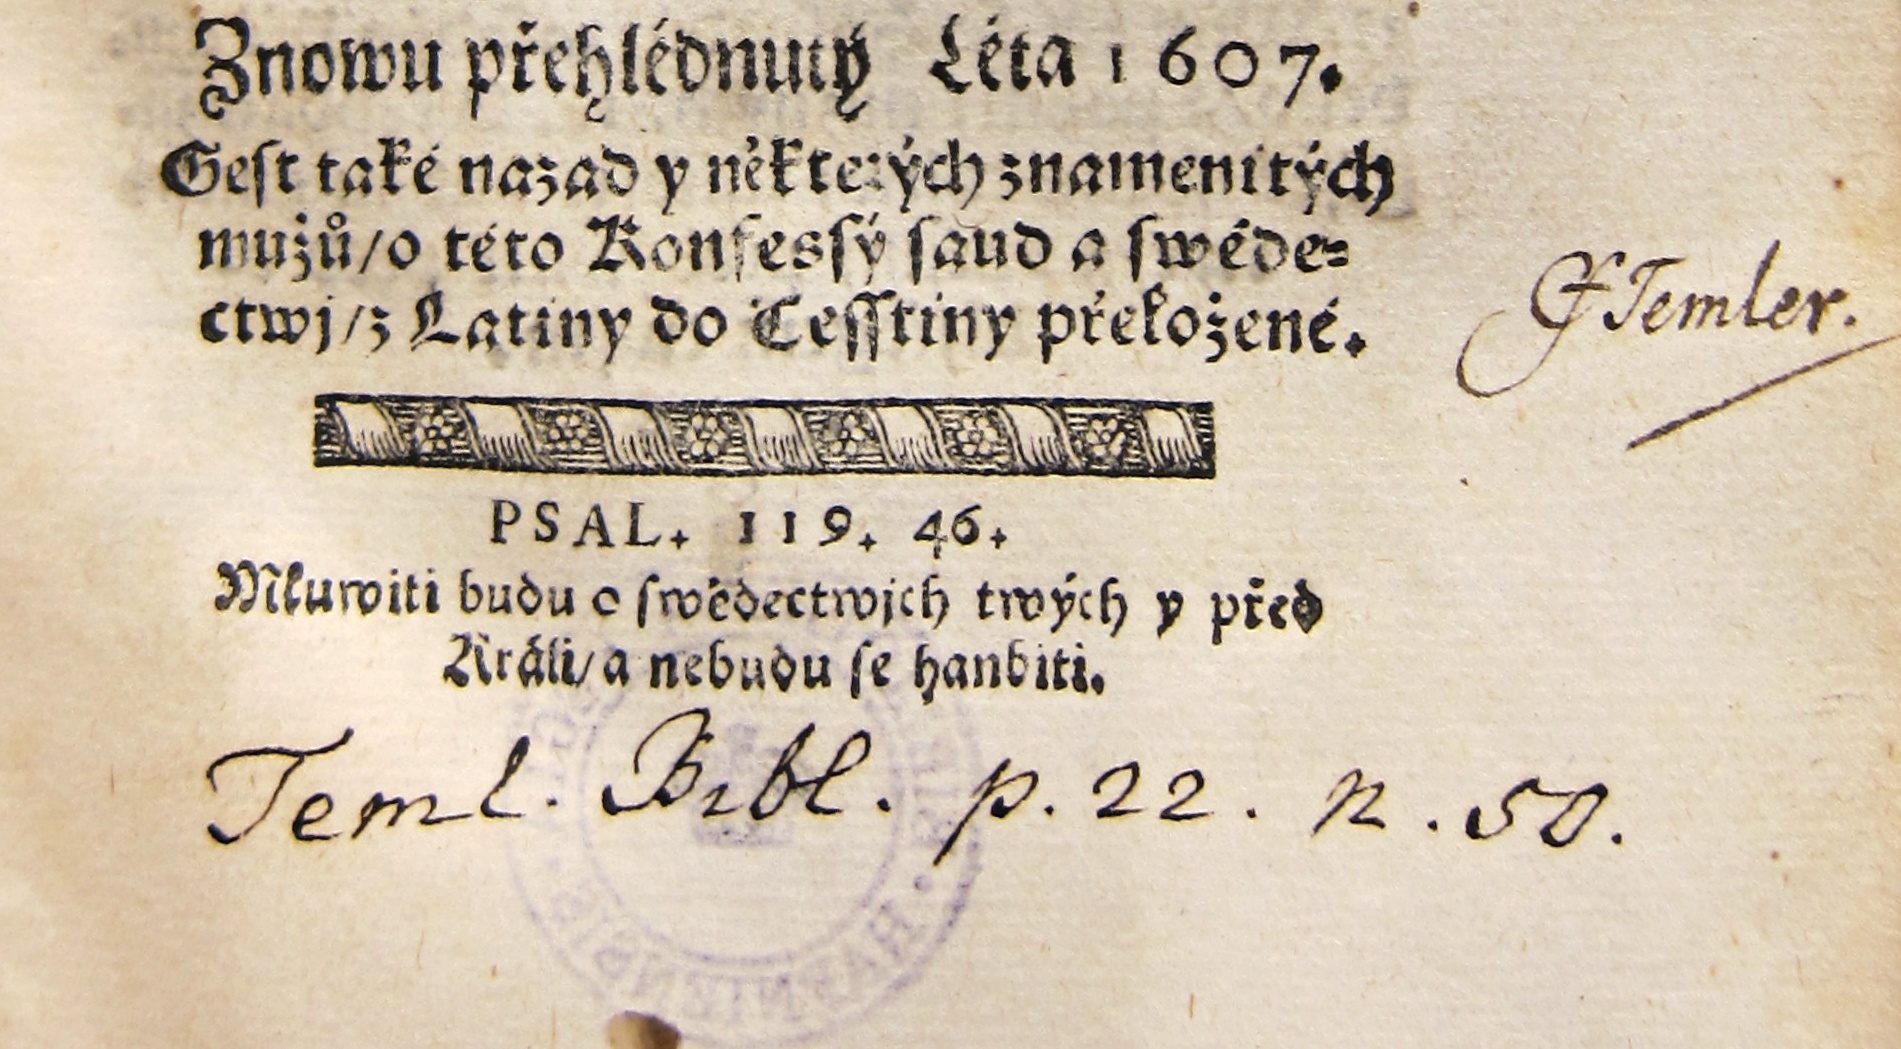 Znowu přehlédnutý Léta 1607.
Gest také nazad y některých znamenitých
mužů/o této Konfessý saud a swěde-
ctwj/z Latiny do Čessstiny přeložené.
CfTemler.
PSAL. 119. 46.
Mluwiti budu o swědectwjch twých y před
Králi/a nebudu se hanbiti.
Teml. Bibl. p. 22. n. 50.